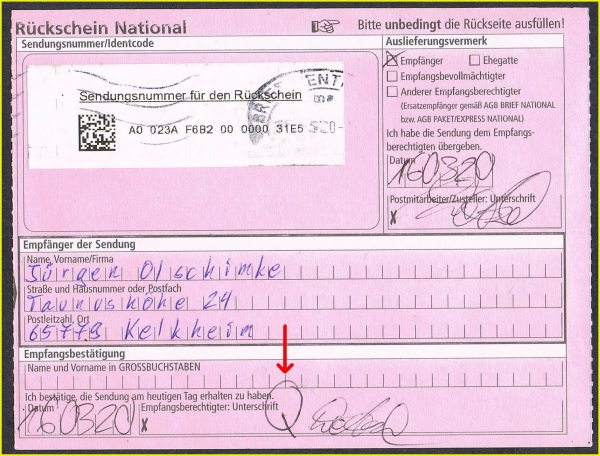 Rückschein National
Bitte unbedingt die Rückseite ausfüllen!
Sendungsnummer/Identcode
Sendungsnummer für den Rückschein
A0 023A F6B2 00 0000 31E5
Auslieferungsvermerk
X Empfänger Ehegatte
Empfangsbevollmächtigter
Anderer Empfangsberechtigter
(Ersatzempfänger gemäß AGB BRIEF NATIONAL
bzw. AGB PAKET/EXPRESS NATIONAL)
Ich habe die Sendung dem Empfangs-
berechtigten übergeben.
Datum
160320
Postmitarbeiter/Zusteller: Unterschrift
X
Empfänger der Sendung
Name, Vorname/Firma
Jürgen Olschimke
Straße und Hausnummer oder Postfach
Taunushöhe 24
Postleitzahl, Ort
65779 Kelkheim
Empfangsbestätigung
Name und Vorname in GROSSBUCHSTABEN
Ich bestätige, die Sendung am heutigen Tag erhalten zu haben.
Datum Empfangsberechtigter: Unterschrift
160320 X